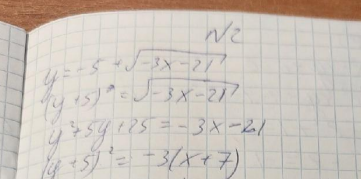 №2
y = -5 + √(-3x-21)
(y+5)² = √(-3x-21)
y²+5y+25 = -3x-21
(y+5)² = -3(x+7)